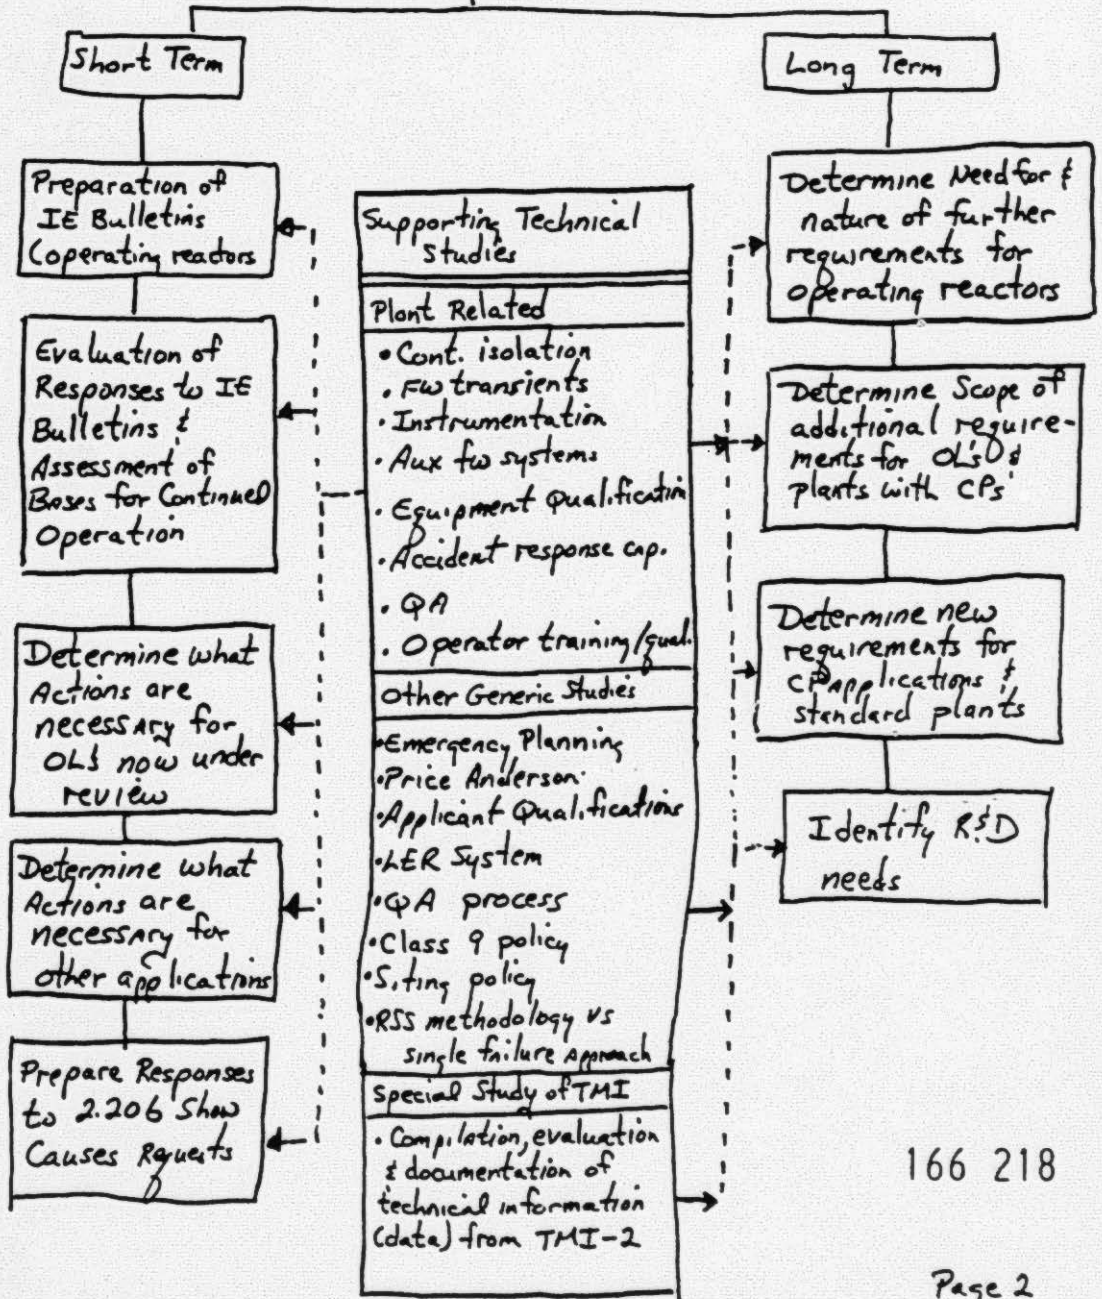 Short Term
Preparation of
IE Bulletins
(operating reactors
Evaluation of
Responses to IE
Bulletins &
Assessment of
Bases for Continued
Operation
Determine what
Actions are
necessary for
OL's now under
review
Determine what
Actions are
necessary for
other applications
Prepare Responses
to 2.206 Show
Causes Requests
Supporting Technical
Studies
Plant Related
• Cont. isolation
• FW transients
• Instrumentation
• Aux fw systems
• Equipment Qualification
• Accident response cap.
• QA
• Operator training/qual.
Other Generic Studies
• Emergency Planning
• Price Anderson
• Applicant Qualifications
• LER System
• QA process
• Class 9 policy
• Siting policy
• RSS methodology vs
single failure approach
Special Study of TMI
• Compilation, evaluation
& documentation of
technical information
(data) from TMI-2
Long Term
Determine Need for &
nature of further
requirements for
operating reactors
Determine Scope of
additional require-
ments for OL's &
plants with CPs
Determine new
requirements for
CP Applications &
standard plants
Identify R&D
needs
166 218
Page 2